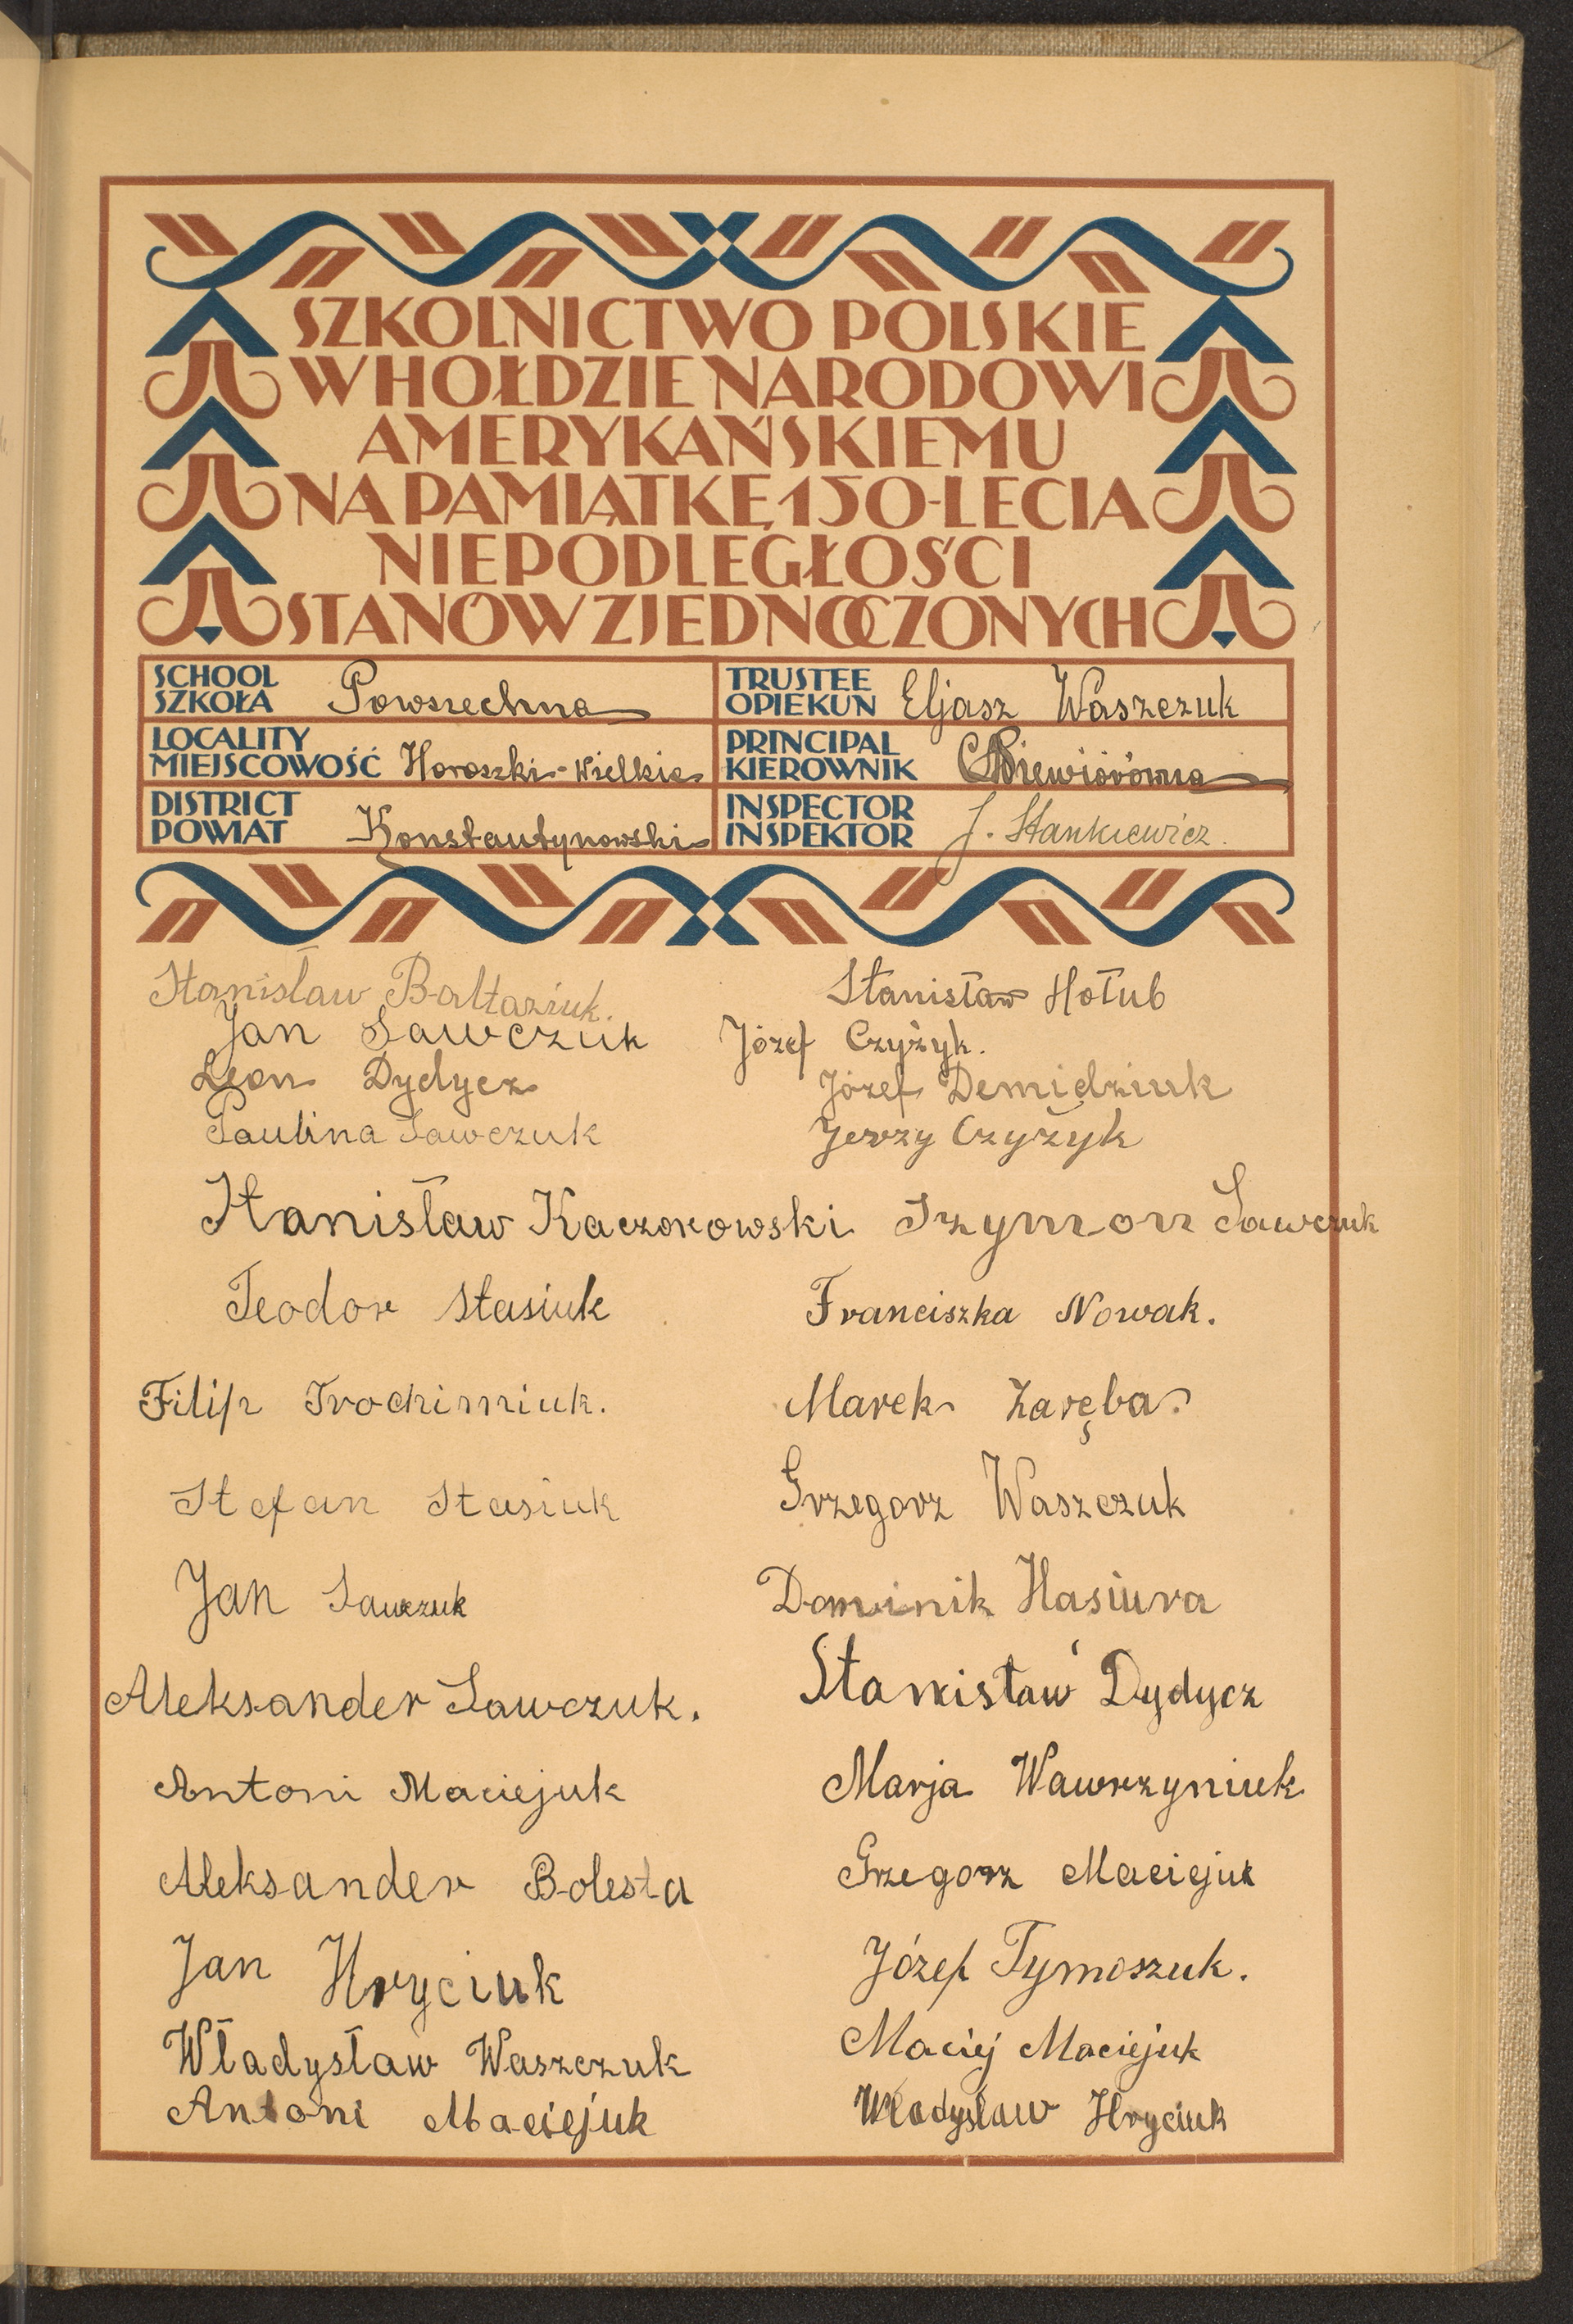 SZKOLNICTWO POLSKIE
W HOŁDZIE NARODOWI
AMERYKAŃSKIEMU
NA PAMIĄTKĘ 150-LECIA
NIEPODLEGŁOŚCI
STANÓW ZJEDNOCZONYCH
SCHOOL
SZKOŁA Powszechna
TRUSTEE
OPIEKUN Eljasz Waszczuk
LOCALITY
MIEJSCOWOŚĆ Horoszki-Wielkie
PRINCIPAL
KIEROWNIK
DISTRICT
POWIAT Konstantynowski
INSPECTOR
INSPEKTOR J. Stankiewicz.
Stanisław Bałtaziuk. Stanisław Hołub
Jan Sawczuk Józef Czyżyk.
Leon Dydycz Józef Demidziuk
Paulina Sawczuk Jerzy Czyżyk
Stanisław Kaczorowski Szymon Sawczuk
Teodor Stasiuk Franciszka Nowak.
Filip Trochimiuk. Marek Zaręba.
Stefan Stasiuk Grzegorz Waszczuk
Jan Sawczuk Dominik Hasiura
Aleksander Sawczuk. Stanisław Dydycz
Antoni Maciejuk Marja Wawrzyniuk
Aleksander Bolesta Grzegorz Maciejuk
Jan Hryciuk Józef Tymoszuk.
Władysław Waszczuk Maciej Maciejuk
Antoni Maciejuk Władysław Hryciuk